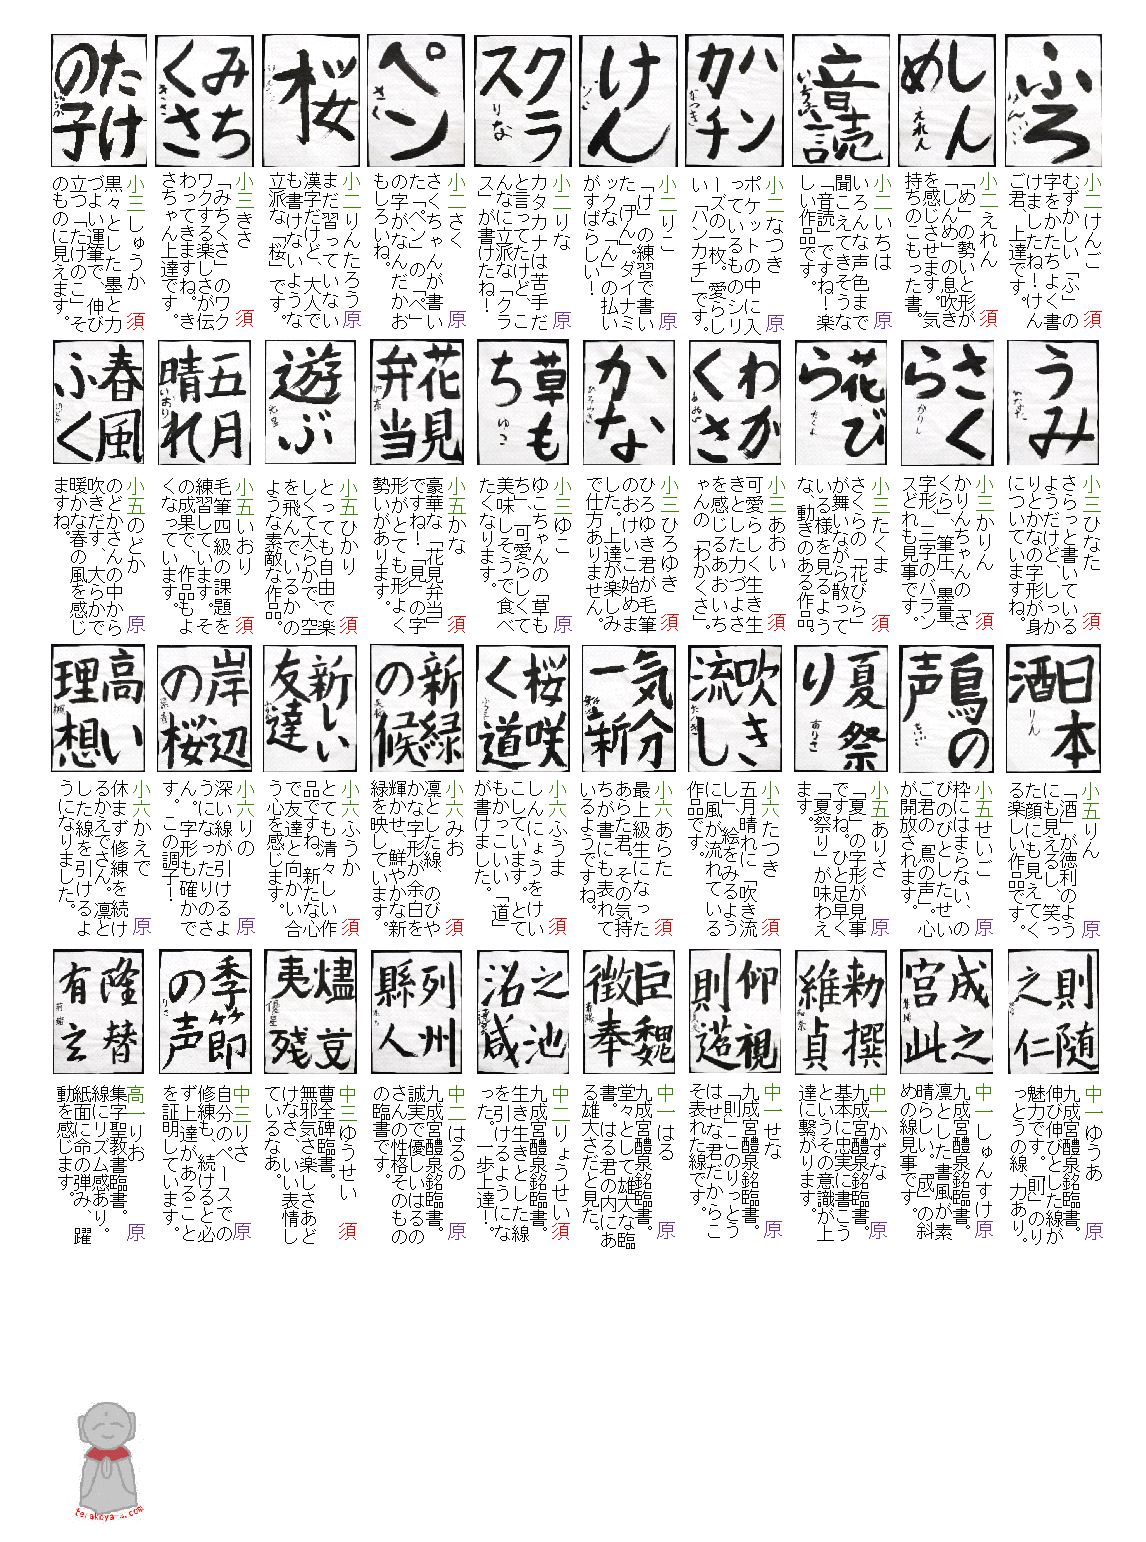 ふろ
小二 けんご 須
むずかしい「ふ」の
字をかたちよく書
けましたね！けん
ご君、上達です。
しん
めん
えれん
小二 えれん 須
「め」の勢いと形が
「しんめ」の息吹き
を感じさせます。気
持ちのこもった書。
音読
小二 いちは
いろんな声色まで
聞こえてきそうな
「音読」ですね！楽
しい作品です。
ハン
カチ
なつき
小二 なつき 原
ポケットの中に入
っているもののシリ
ーズの一枚。愛らし
い「ハンカチ」です。
けん
小二 りこ 原
「け」の練習で書い
た「けん」。ダイナミ
ックな「ん」の払い
がすばらしい！
クラ
ス
りな
小二 りな 原
カタカナは苦手だ
と言ってたけど、こ
んなに立派な「クラ
ス」が書けたね！
ペン
さく
小二 さく 原
さくちゃんが書い
た「ペン」の「ペ」
の字がなんだかお
もしろいね。
桜
小二 りんたろう 原
まだ習っていない
漢字だけど、大人で
も書けないような
立派な「桜」です。
みち
くさ
きさき
小三 きさき 須
「みちくさ」のワク
ワクする楽しさが伝
わってきますね。き
さちゃん上達です。
たけ
の子
しゅうか
小三 しゅうか 須
黒々とした墨と力
づよい運筆で、伸び
立つ「たけのこ」そ
のものに見えます。
うみ
小三 ひなた 須
さらっと書いている
ようだけど、しっか
りとかなの字形が身
についていますね。
さく
ら
かりん
小三 かりん 須
かりんちゃんの「さ
くら」、筆圧、墨量、
字形、三字のバラン
スどれも見事です。
花び
ら
たくま
小三 たくま 須
さくらの「花びら」
が舞いながら散って
いる様を見るよう
な、動きのある作品。
わか
くさ
小三 あおい 須
可愛らしく生き生
きとした力づよさ
を感じるあおいち
ゃんの「わかくさ」。
かな
ひろゆき
小三 ひろゆき 須
ひろゆき君が毛筆
のおけいこ始めま
した。上達が楽しみ
で仕方ありません。
草も
ち
ゆこ
小三 ゆこ 原
ゆこちゃんの「草も
ち」、可愛らしくて
美味しそうで食べ
たくなります。
花見
弁当
小五 かな 須
豪華な「花見弁当」
ですね！「見」の字
形がとても形よく
勢いがあります。
遊ぶ
小五 ひかり 須
とっても自由で楽
しくて大らかで、空
を飛んでいるかの
ような素敵な作品。
五月
晴れ
いおり
小五 いおり 須
毛筆四級の課題を
練習しています。そ
の成果で、作品もよ
くなっています。
春風
ふく
のどか
小五 のどか 原
のどかさんの中から
吹きだす、大らかで
暖かな春の風を感じ
ますね。
日本
酒
りん
小五 りん 原
「酒」が徳利のよう
にも見えるし、笑っ
た顔にも見えてく
る楽しい作品です。
鳥の
声
せいご
小五 せいご 原
枠にはまらない、の
びのびとしたせい
ご君の「鳥の声」。心
が開放されます。
夏祭
り
ありさ
小五 ありさ 原
「夏」の字形が見事
ですね。ひと足早く
「夏祭り」が味わえ
ます。
吹き
流し
たつき
小六 たつき 須
五月晴れに「吹き流
し」、絵をみるよう
に風が流れている
作品です。
気分
一新
小六 あらた 須
最上級生になった
あらた君。その気持
ちが書にも表れて
いるようですね。
桜咲
く道
ふうま
小六 ふうま 須
しんにょうをけい
こしています。とて
もかっこいい「道」
が書けました。
新緑
の候
小六 みお 須
凛とした線、のびや
かな字形が余白を
輝かせ、鮮やかな新
緑を映しています。
新しい
友達
小六 ふうか 須
とても清々しい作
品ですね。新たな心
で友達と向かい合
う心を感じます。
岸辺
の桜
小六 りの 原
深い線が引けるよ
うになったりのさ
ん。字形も確かで
す。この調子！
高い
理想
楓
小六 かえで 原
休まず修練を続け
るかえでさん。凛と
した線を引けるよ
うになりました。
則随
之仁
中一 ゆうあ 原
九成宮醴泉銘臨書。
伸び伸びとした線が
魅力です。「則」のり
っとうの線、力あり。
成之
宮此
中一 しゅんすけ 原
九成宮醴泉銘臨書。
凛とした書風が素
晴らしい。「成」の斜
めの線見事です。
勅撰
維貞
中一 かずな 原
九成宮醴泉銘臨書。
基本に忠実に書こう
というその意識が上
達に繋がります。
仰視
則造
中一 せな 原
九成宮醴泉銘臨書。
「則」このりっとう
はせな君だからこ
それた線です。
臣魏
徴奉
中一 はる 原
九成宮醴泉銘臨書。
堂々として雄大な臨
書。はる君の内にあ
る雄大さだと見た。
之池
洺咸
中二 りょうせい 須
九成宮醴泉銘臨書。
生き生きとした線
を引けるようにな
った。一歩上達！
列州
縣人
中二 はるの 原
九成宮醴泉銘臨書。
誠実で優しいはるの
さんの性格そのもの
の臨書です。
燼芟
夷残
優星
中三 ゆうせい 須
曹全碑臨書。
無邪気さ楽しさあど
けなさ、いい表情し
ているなあ。
季節
の声
りさ
中三 りさ 原
自分のペースでの
修練も、続けると必
ず上達があること
を証明しています。
隆替
有玄
高一 りお 原
集字聖教書臨書。
線にリズム感あり。
紙面に命の弾み、躍
動を感じます。
terakoya-s.com